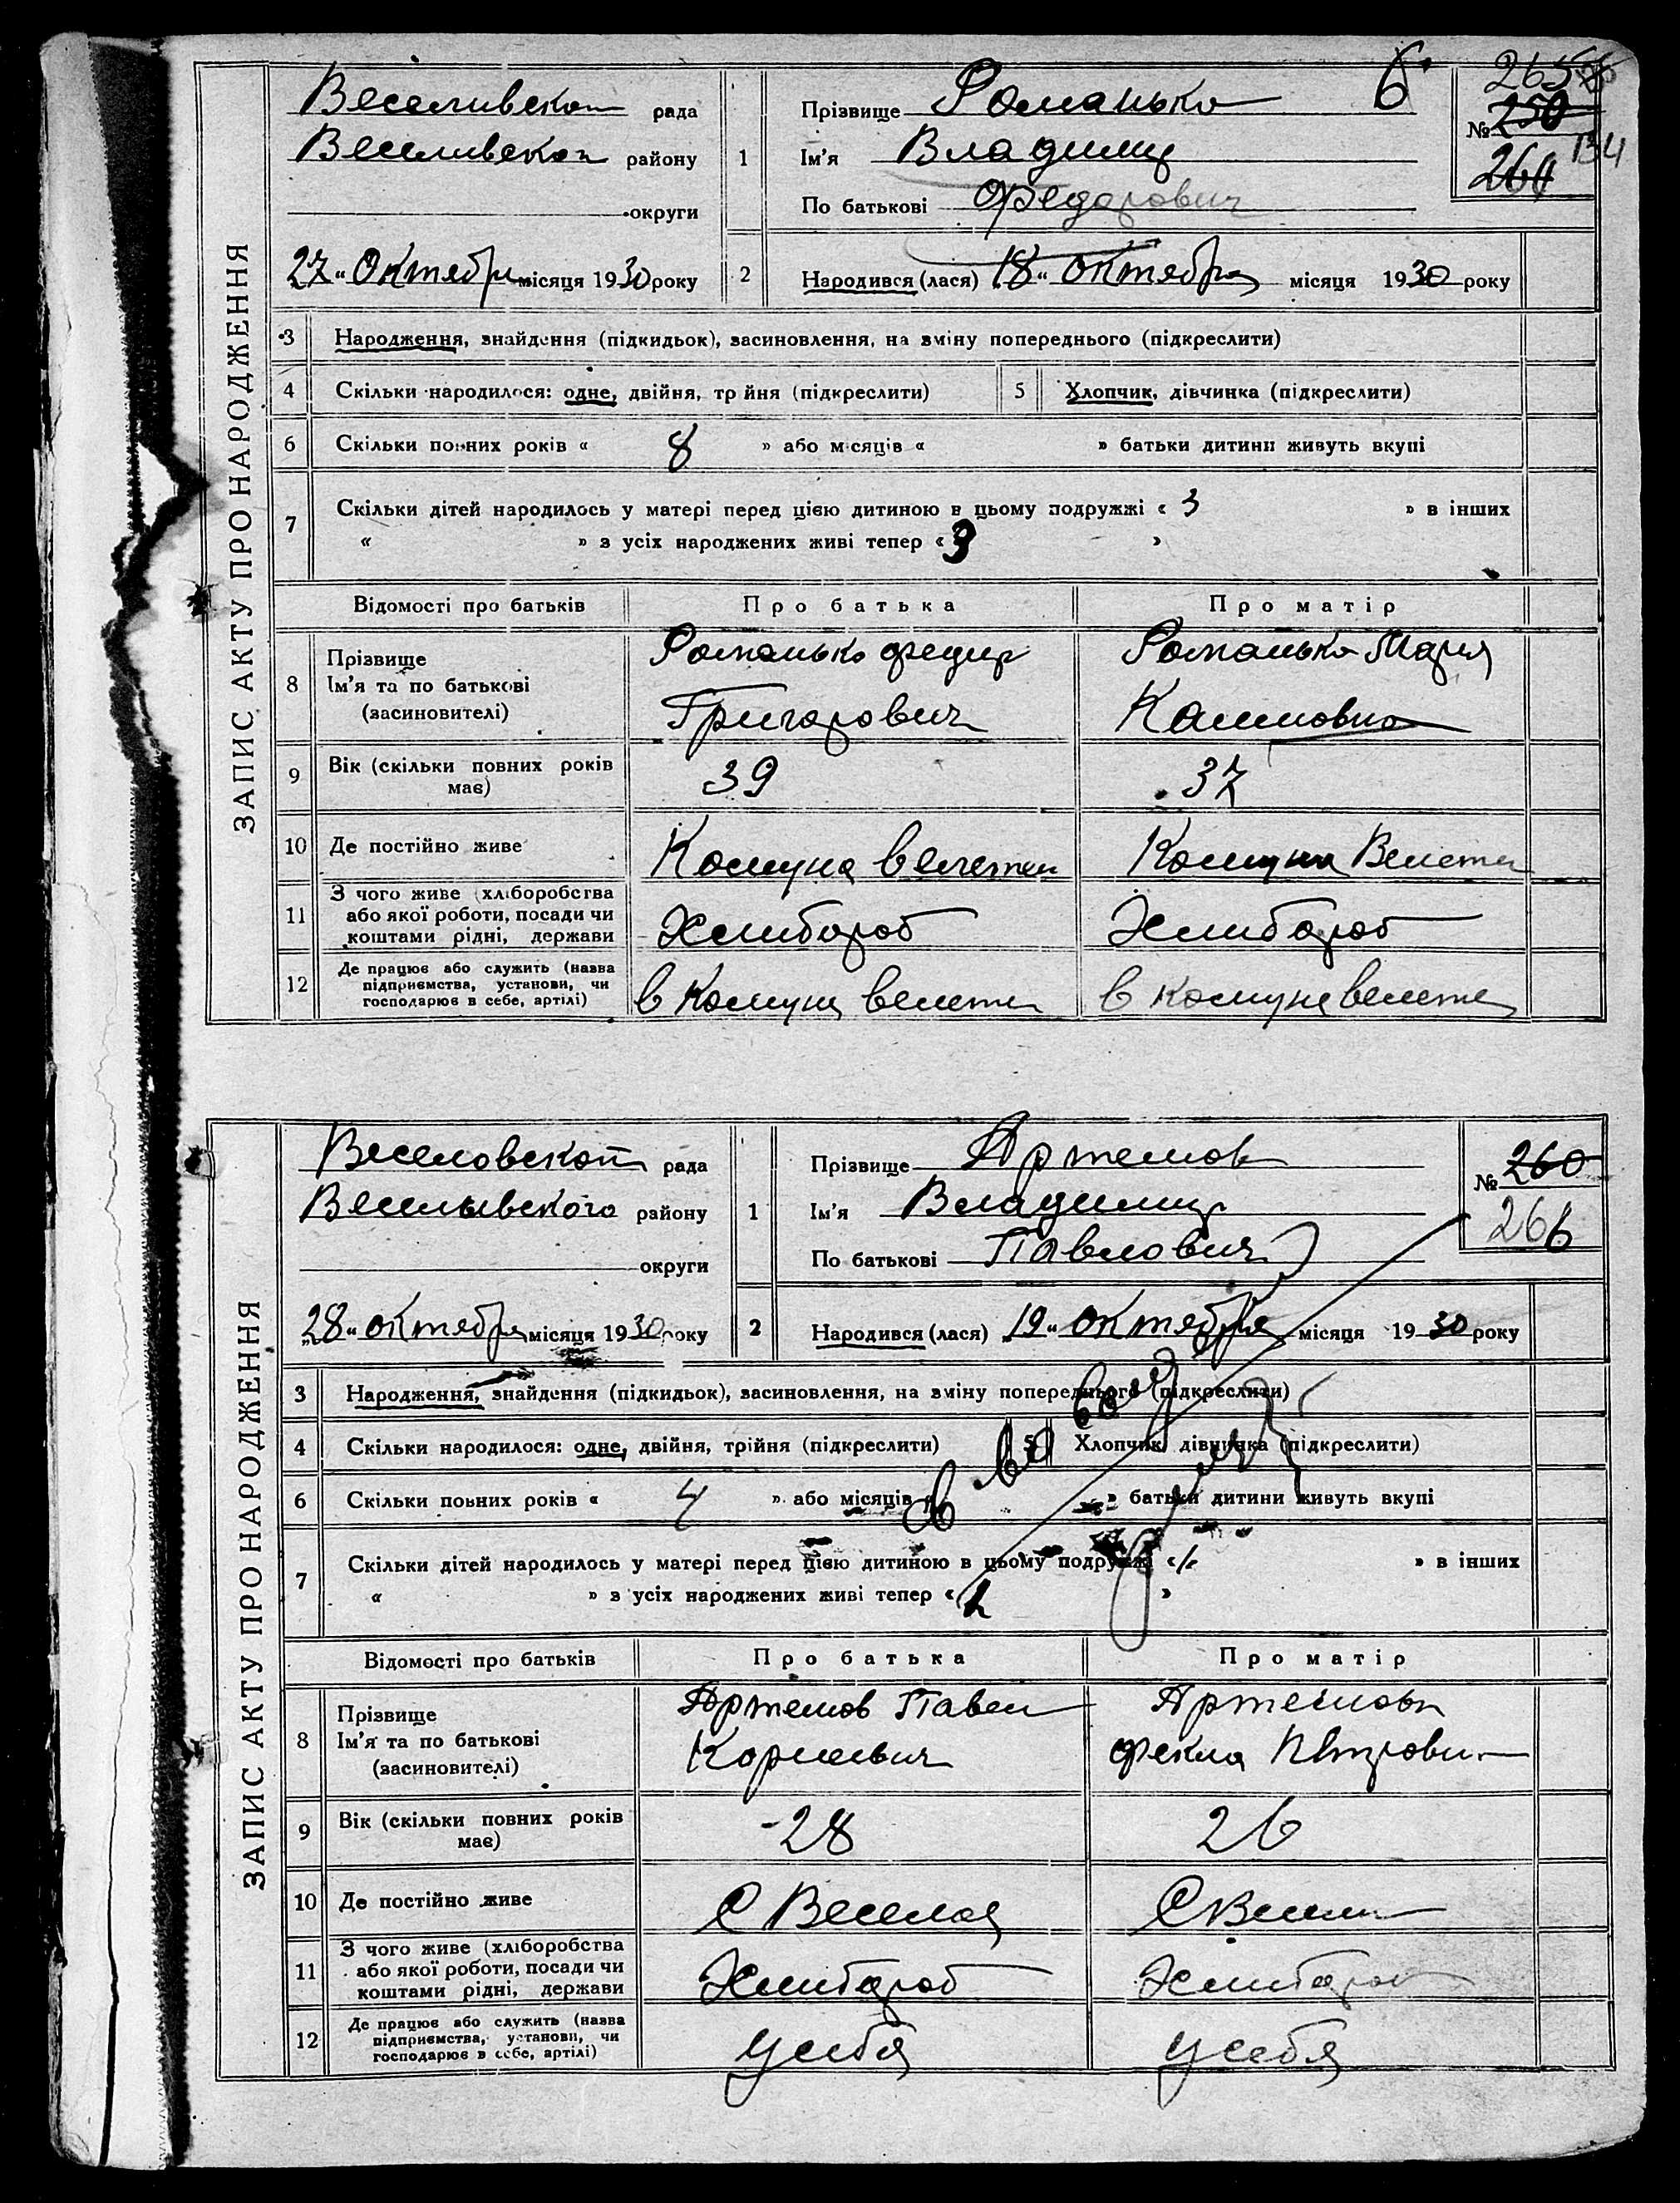 ЗАПИС АКТУ ПРО НАРОДЖЕННЯ
Веселивской рада
Веселивской району
округи
27 „ Октября місяця 1930 року
1
Прізвище Романько
Ім'я Владимир
По батькові Федорович
6
265
№ 250
264
134
2
Народився (лася) 18 „ октября місяця 1930 року
3 Народження, знайдення (підкидьок), засиновлення, на зміну попереднього (підкреслити)
4 Скільки народилося: одне, двійня, тр йня (підкреслити)
5 Хлопчик, дівчинка (підкреслити)
6 Скільки повних років « 8 » або місяців « » батьки дитини живуть вкупі
7 Скільки дітей народилось у матері перед цією дитиною в цьому подружжі « 3 » в інших
« » з усіх народжених живі тепер « 3 »
Відомості про батьків Про батька Про матір
8 Прізвище
Ім'я та по батькові
(засиновителі)
Романько Федир
Григорович
Романько Мария
9 Вік (скільки повних років має) 39 37
10 Де постійно живе Комуна Велетен Комуна Велетен
11 З чого живе (хліборобства
або якої роботи, посади чи
коштами рідні, держави
Хлибороб Хлибороб
12 Де працює або служить (назва
підприємства, установи, чи
господарює в себе, артілі)
в комуне велетен в комуне велетен
ЗАПИС АКТУ ПРО НАРОДЖЕННЯ
Веселовской рада
Веселывского району
округи
28 „ октября місяця 1930 року
1
Прізвище Артемов
Ім'я Владимир
По батькові Павлович
№ 260
266
2
Народився (лася) 19 „ октября місяця 1930 року
3 Народження, знайдення (підкидьок), засиновлення, на зміну попереднього (підкреслити)
4 Скільки народилося: одне, двійня, трійня (підкреслити)
5 Хлопчик, дівчинка (підкреслити)
6 Скільки повних років « 4 » або місяців « » батьки дитини живуть вкупі
7 Скільки дітей народилось у матері перед цією дитиною в цьому подружжі « 1 » в інших
« » з усіх народжених живі тепер « »
Відомості про батьків Про батька Про матір
8 Прізвище
Ім'я та по батькові
(засиновителі)
Артемов Павел
Корнеевич
Артемова
Фекла Петровн
9 Вік (скільки повних років має) 28 26
10 Де постійно живе С Веселое С Веселое
11 З чого живе (хліборобства
або якої роботи, посади чи
коштами рідні, держави
Хлибороб Хлибороб
12 Де працює або служить (назва
підприємства, установи, чи
господарює в себе, артілі)
у себя у себя